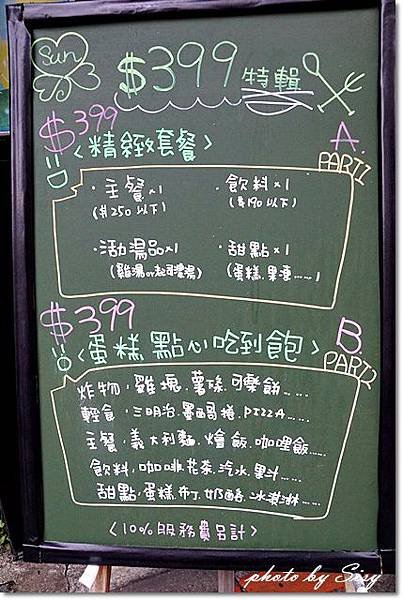 Sun
$399特輯
$399
A.
<精緻套餐>
PART1
·主餐x1
($250以下)
·飲料x1
($190以下)
·湯品x1
(雞湯or起司濃湯)
·甜點x1
(蛋糕.果凍……)
$399
B.
<蛋糕點心吃到飽>
PART2
炸物,雞塊.薯條.可樂餅……
輕食,三明治.墨西哥捲.PIZZA……
主餐,義大利麵,燴飯.咖哩飯……
飲料,咖啡.花茶.汽水.果汁……
甜點,蛋糕.布丁.奶酪.冰淇淋……
<10%服務費另計>
photo by Sisy